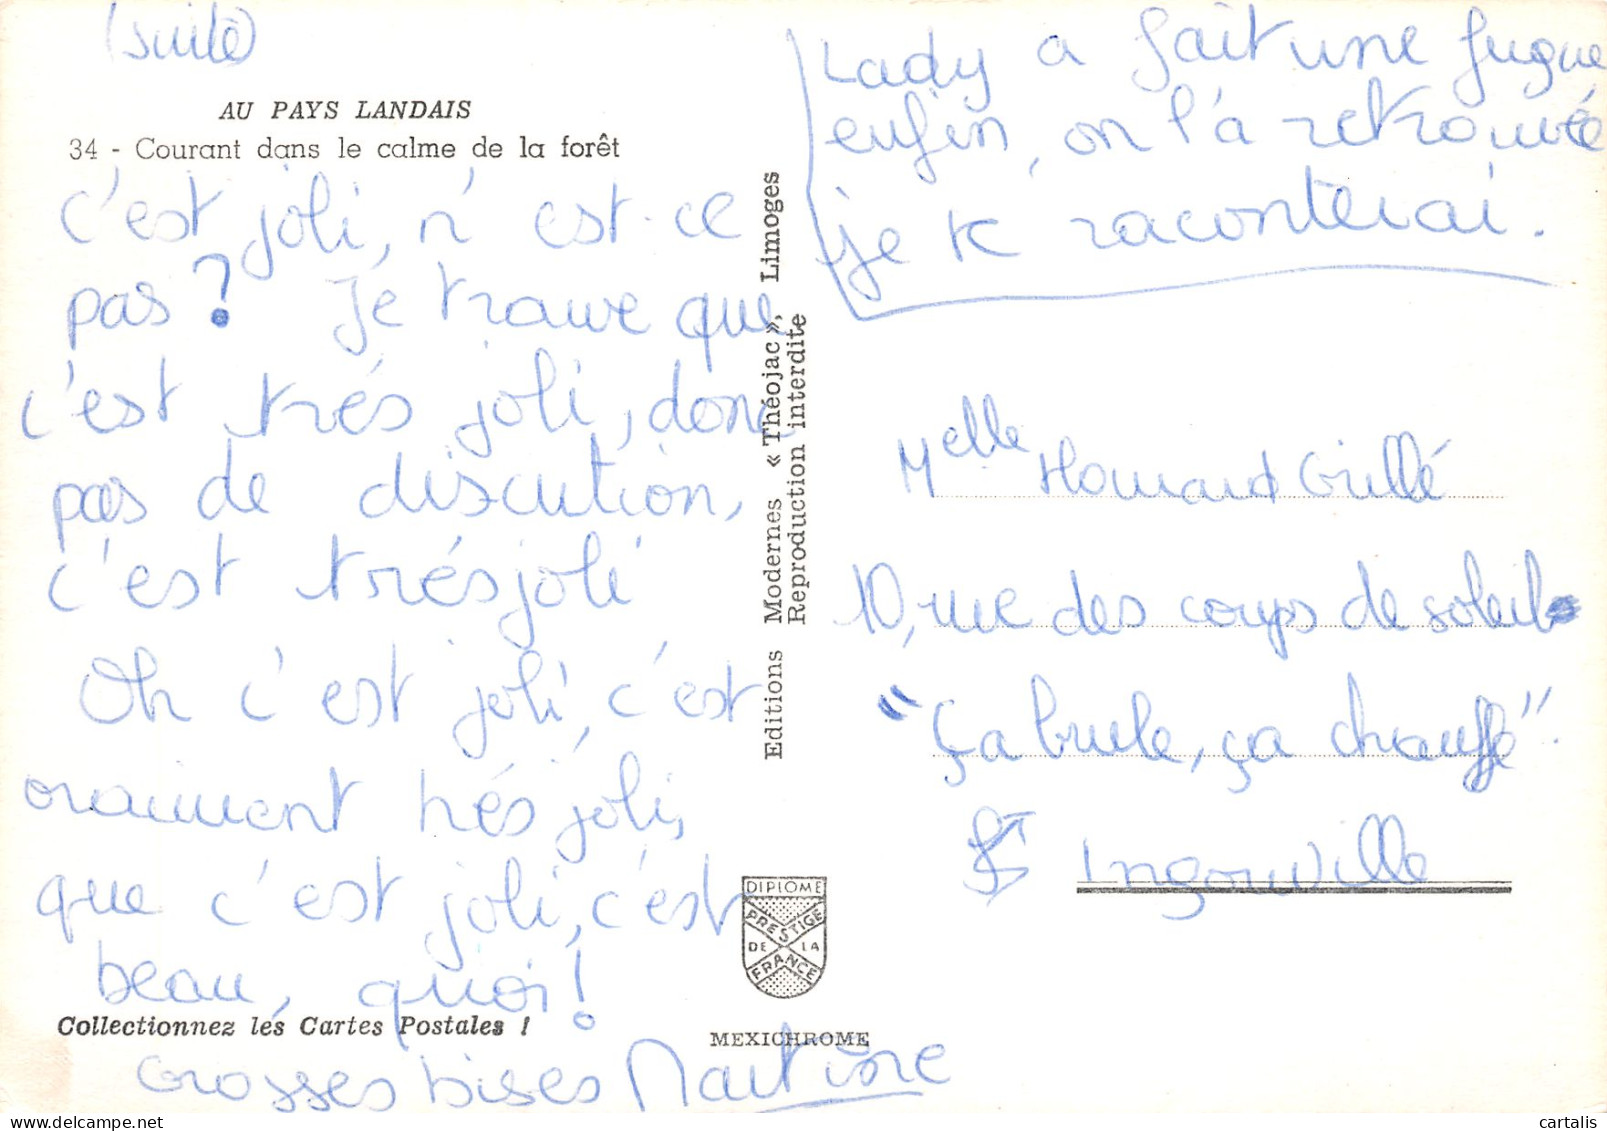 (suite)
AU PAYS LANDAIS
34 - Courant dans le calme de la forêt
c'est joli, n'est-ce
pas ? Je trouve que
c'est trés joli, donc
pas de discution,
c'est trés joli
Oh c'est joli, c'est
vraiment trés joli,
que c'est joli, c'est
beau, quoi !
Collectionnez les Cartes Postales !
Grosses bises Martine
Editions Modernes « Théojac », Limoges
Reproduction interdite
DIPLOME
PRESTIGE
DE LA
FRANCE
MEXICHROME
Lady a fait une fugue
enfin, on l'a retrouvée
je te raconterai.
Melle Homard Grillé
10, rue des coups de soleil
"Ça brule, ça chauffe".
Ingouville
cartalis